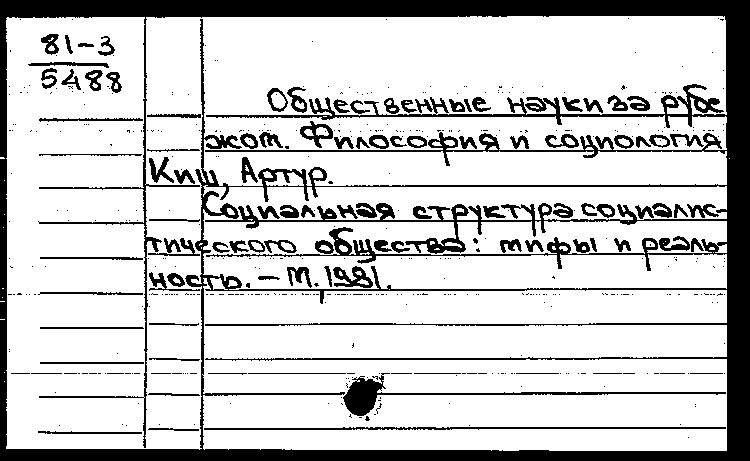 81-3
5488
Общественные науки за рубе
жом. Философия и социология
Киш, Артур.
Социальная структура социалис-
тического общества: мифы и реаль-
ность. – М. 1981.